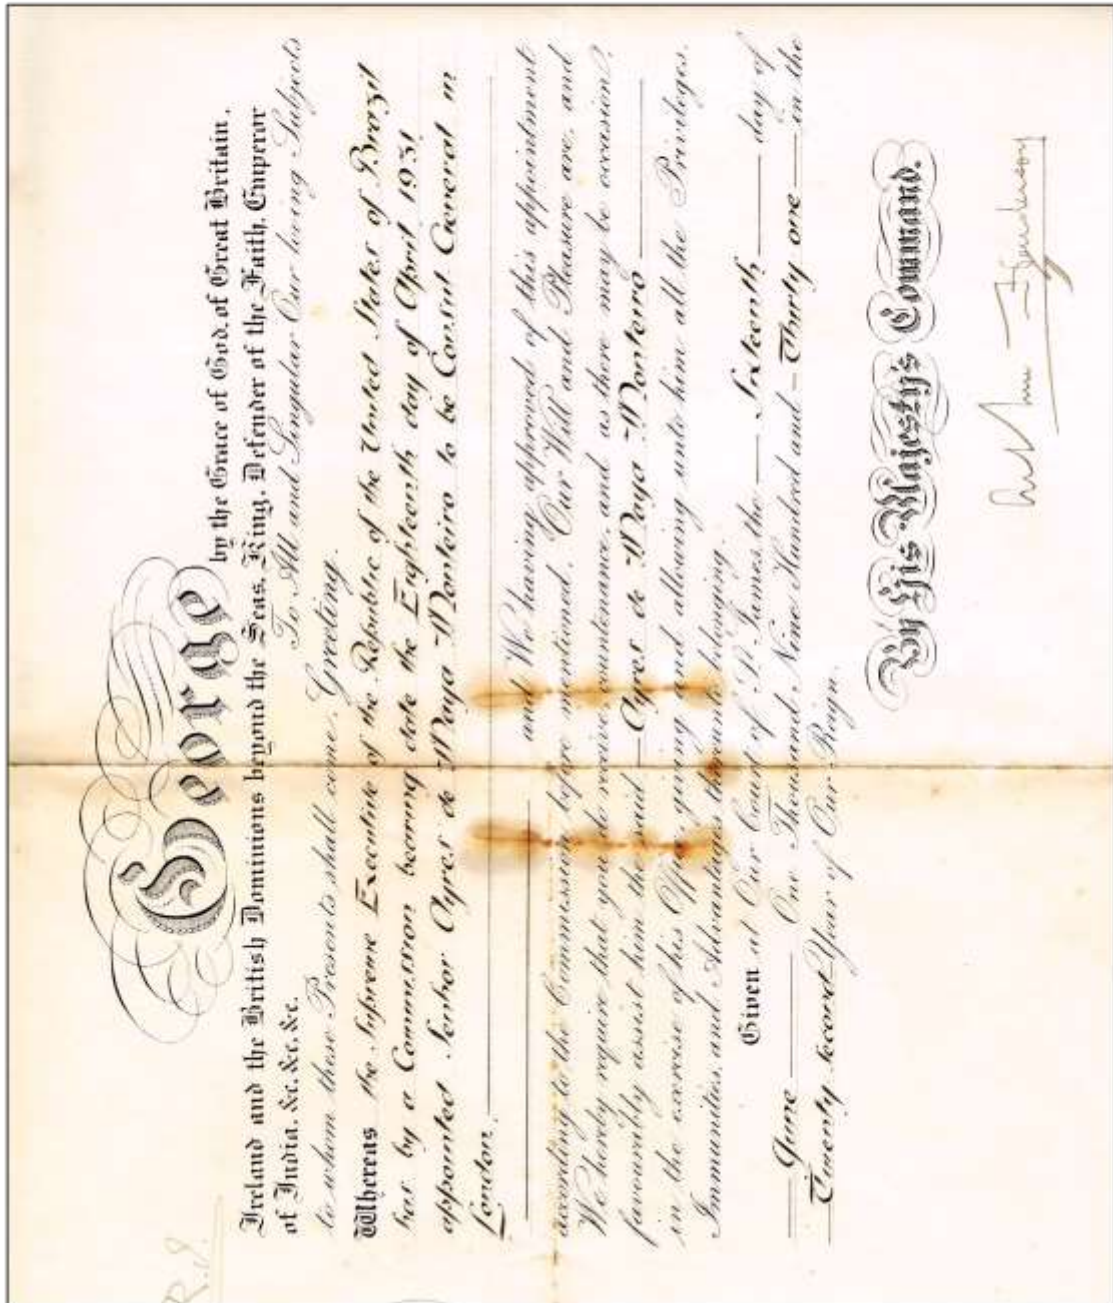 R.I.
George
by the Grace of God, of Great Britain,
Ireland and the British Dominions beyond the Seas, King, Defender of the Faith, Emperor
of India, &c. &c. &c. To All and Singular Our loving Subjects
to whom these Presents shall come, Greeting.
Whereas the Supreme Executive of the Republic of the United States of Brazil
has by a Commission bearing date the Eighteenth day of April 1931
appointed Senhor Ayres de Maya Monteiro to be Consul General in
London,
and We having approved of this appointment
according to the Commission before mentioned, Our Will and Pleasure are, and
We hereby require that you do receive, countenance, and as there may be occasion,
favourably assist him the said Ayres de Maya Monteiro
in the exercise of his Office giving and allowing unto him all the Privileges,
Immunities, and Advantages thereunto belonging.
Given at Our Court of St. James, the Sixteenth day of
June One Thousand Nine Hundred and Thirty one in the
Twenty second Year of Our Reign.
By His Majesty's Command.